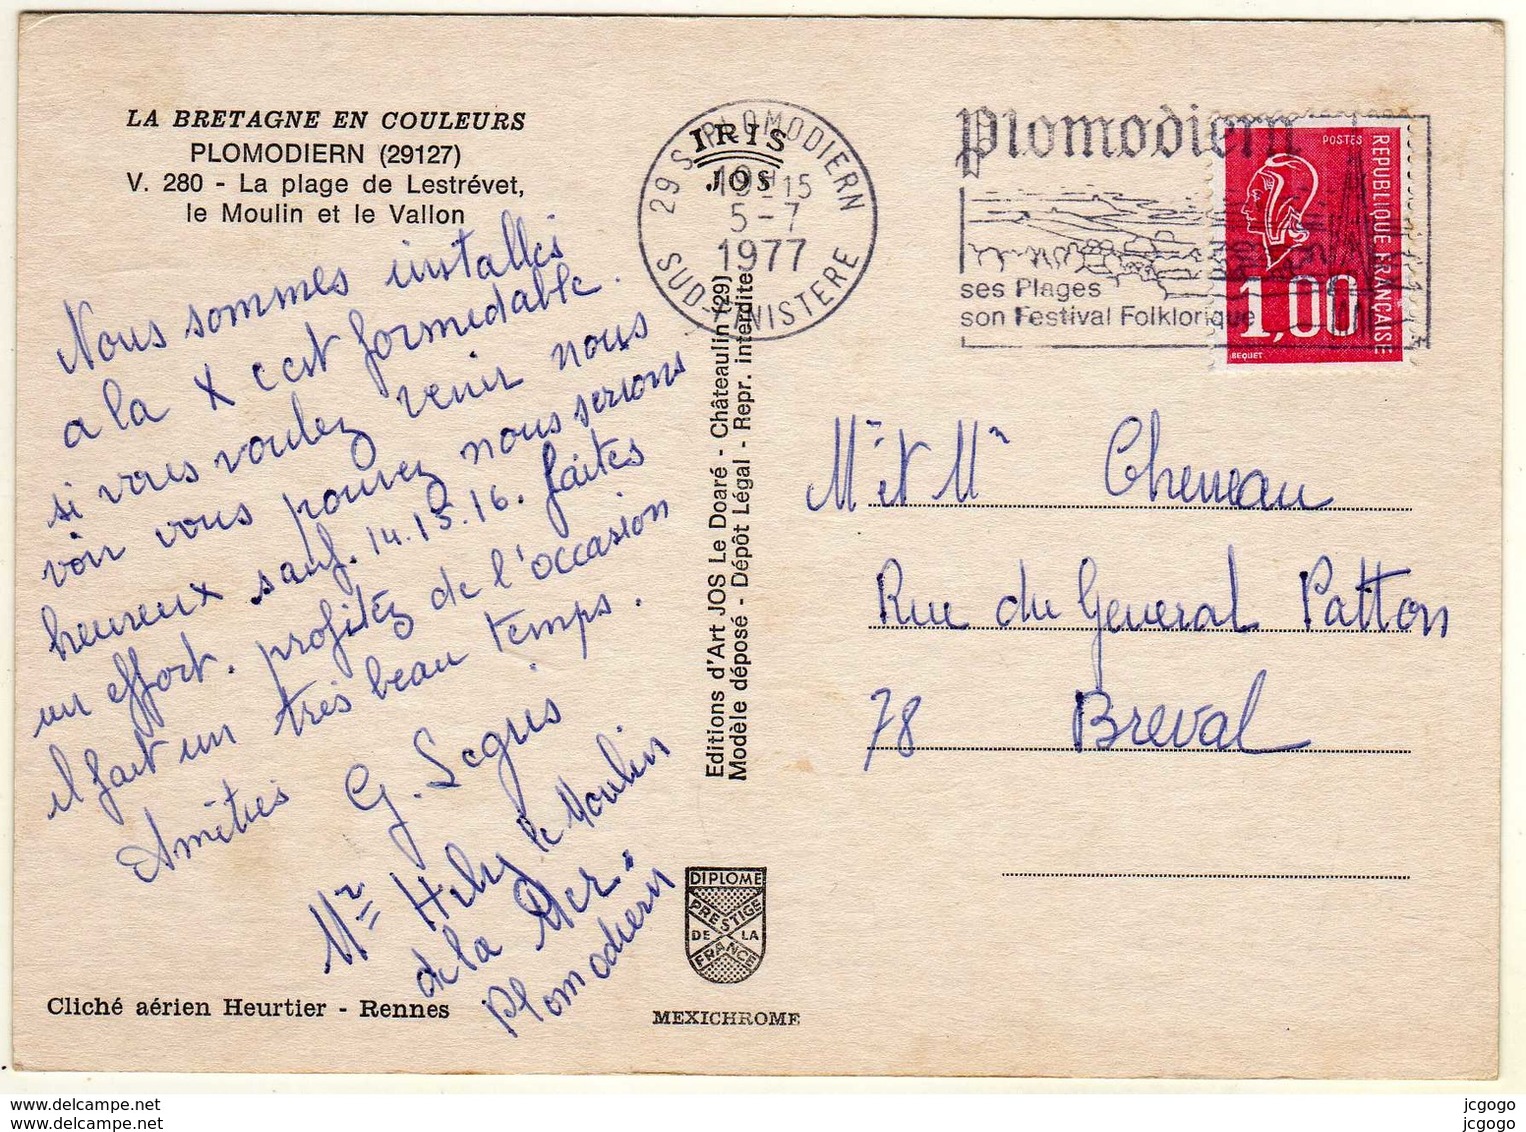 LA BRETAGNE EN COULEURS
PLOMODIERN (29127)
V. 280 - La plage de Lestrévet,
le Moulin et le Vallon
Nous sommes installés
a la X c est formidable.
si vous voulez venir nous
voir vous pouvez nous serions
heureux sauf. 14.15.16. faites
un effort. profitez de l'occasion
il fait un très beau temps.
Amitiés G. Segris
Mr Hély le Moulin
de la Mer.
Plomodiern
Cliché aérien Heurtier - Rennes
IRIS
JOS
29 S. PLOMODIERN
15
5-7
1977
SUD-FINISTERE
Editions d'Art JOS Le Doaré - Châteaulin (29)
Modèle déposé - Dépôt Légal - Repr. interdite
DIPLOME
PRESTIGE
DE LA
FRANCE
MEXICHROME
Plomodiern
ses Plages
son Festival Folklorique
POSTES
REPUBLIQUE FRANÇAISE
1,00
BEQUET
Mr et Me Cheneau
Rue du General Patton
78 Breval
delcampe.net
delcampe.net
jcgogo
jcgogo